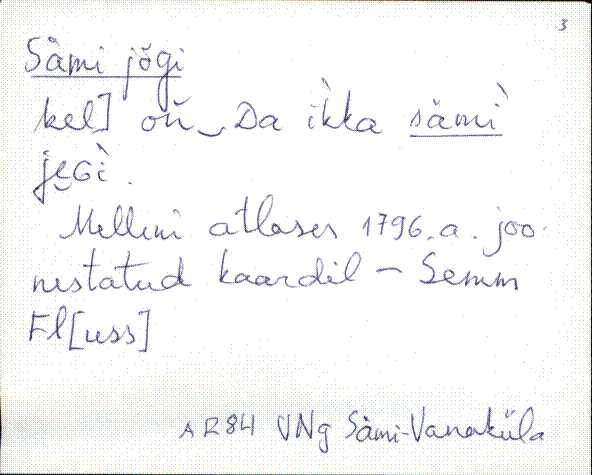 3
Sämi jõgi
kel] oǹ‿Da ikkà sämì
je̮Gì.
Mellini atlases 1796. a. joo-
nestatud kaardil – Semm
Fl[uss]
AR84 VNg Sämi-Vanaküla